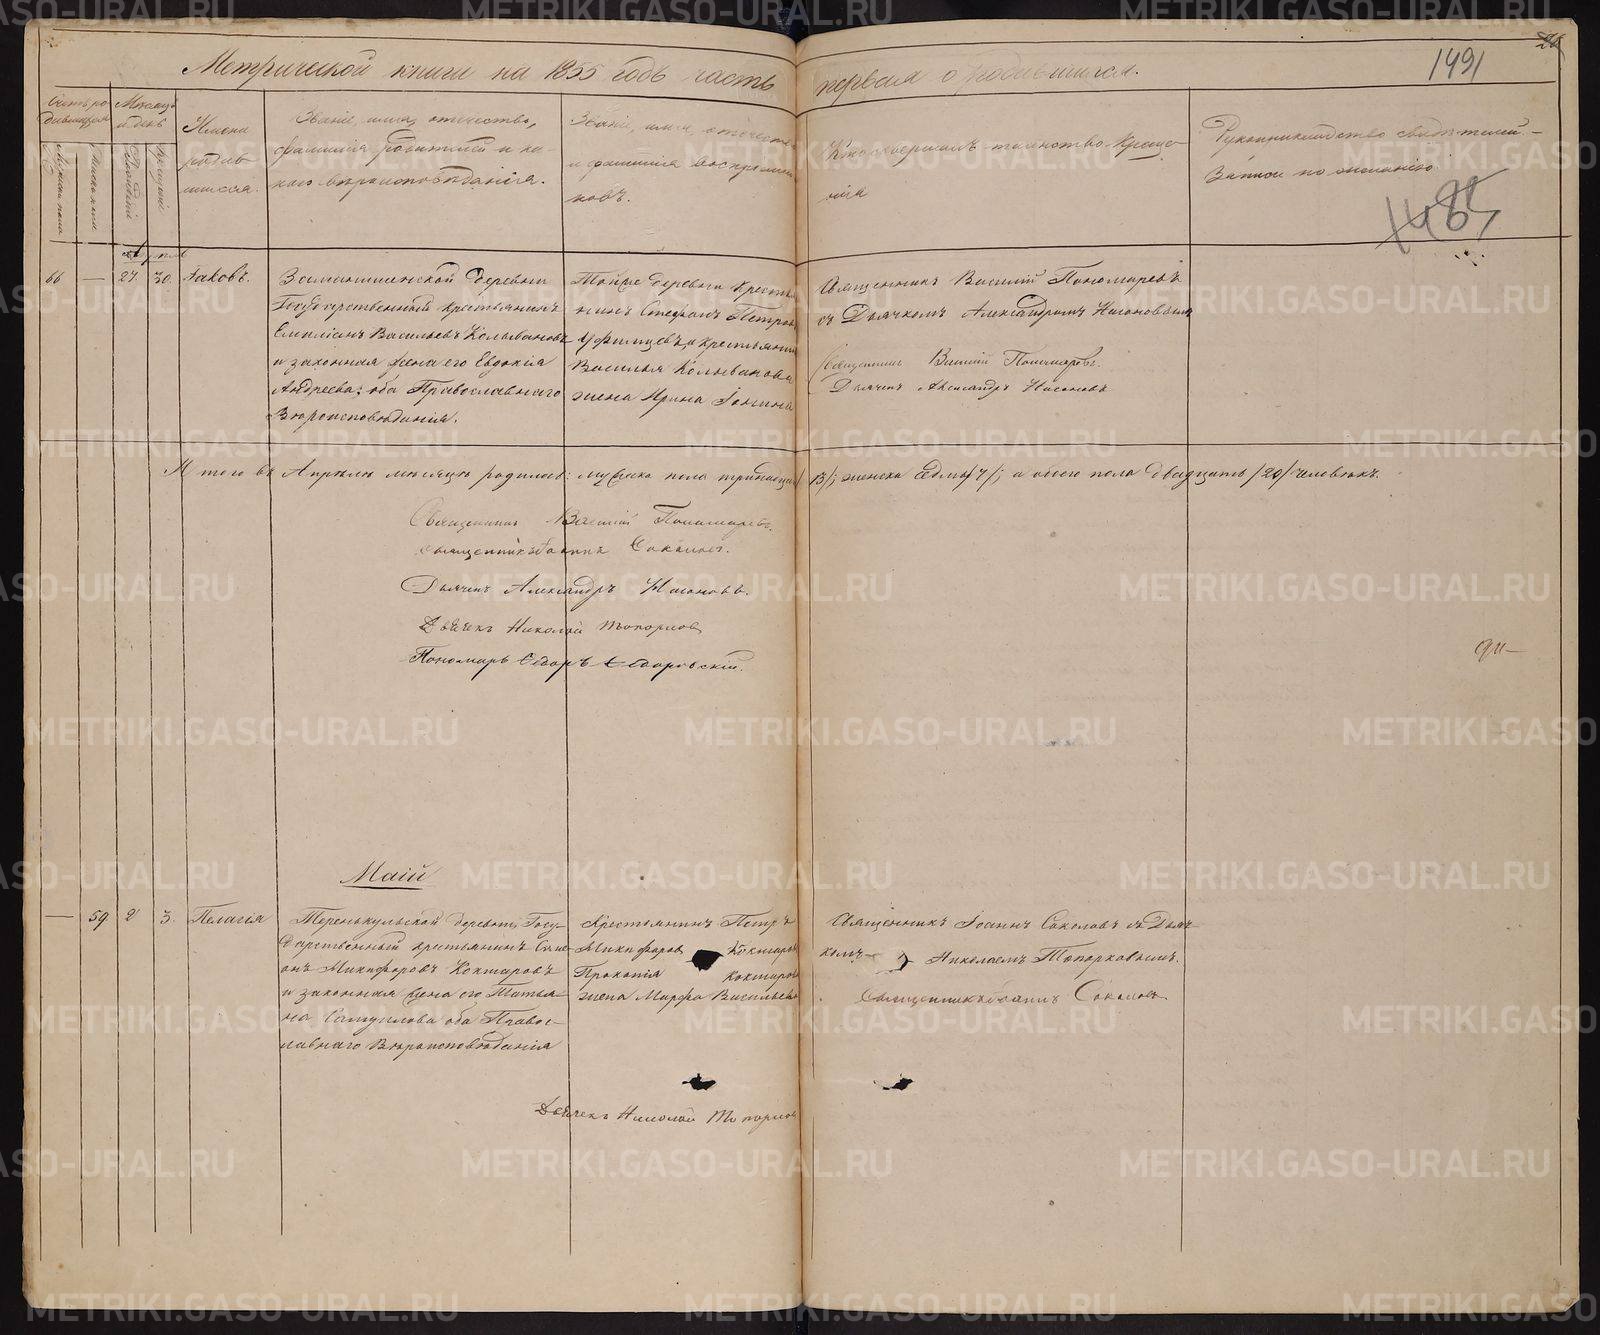 Метрической книги на 1855 годъ часть первая о родившихся.
1491
Счетъ родившихся
Мѣсяцъ и день
Имена родившихся.
Званіе, имя, отечество, фамилія родителей и какого вѣроисповѣданія.
Званіе, имя, отечество и фамилія воспріемниковъ.
Кто совершалъ таинство крещенія
Рукоприкладство свидѣтелей записи по желанію.
Мужеска пола
Женска
Рожденія
Крещенія
1485
Апрѣль
66 — 27. 30. Іаковъ.
деревни
Государственный крестьянинъ
Емиліанъ Васильевъ Колывановъ
и законная жена его Евдокія
Андреева; оба Православнаго
Вѣроисповѣданія.
Тойже деревни крестья
нинъ Стефанъ Петровъ
и крестьянина
Василья Колыванова
жена Ирина
Священникъ Василій Пономаревъ
съ Дьячкомъ Александромъ Насоновымъ
Священникъ Василій Пономаревъ.
Дьячекъ Александръ Насоновъ
Итого въ Апрѣлѣ мѣсяцѣ родилось: мужеска пола тринадцать /13/; женска седмь /7/; а обоего пола двадцать /20/ человѣкъ.
Священникъ Василій Пономаревъ.
Священникъ Іоаннъ Соколовъ.
Дьячекъ Александръ Насоновъ.
Дьячекъ Николай Топорковъ
Пономарь Ѳедоръ Ѳедоровскій.
Маій
— 59 2 3. Пелагея
Теренькульской деревни Госу-
дарственный крестьянинъ Симе-
онъ Никифоровъ Кокшаровъ
и законная жена его Татья-
на Самуилова оба Правос-
лавнаго Вѣроисповѣданія
Крестьянинъ Петръ
Никифоровъ Кокшаровъ
Прокопія Кокшарова
жена Марфа Васильева
Священникъ Іоаннъ Соколовъ съ Дьяч-
комъ Николаемъ Топорковымъ.
Священникъ Іоаннъ Соколовъ
Дьячекъ Николай Топорков